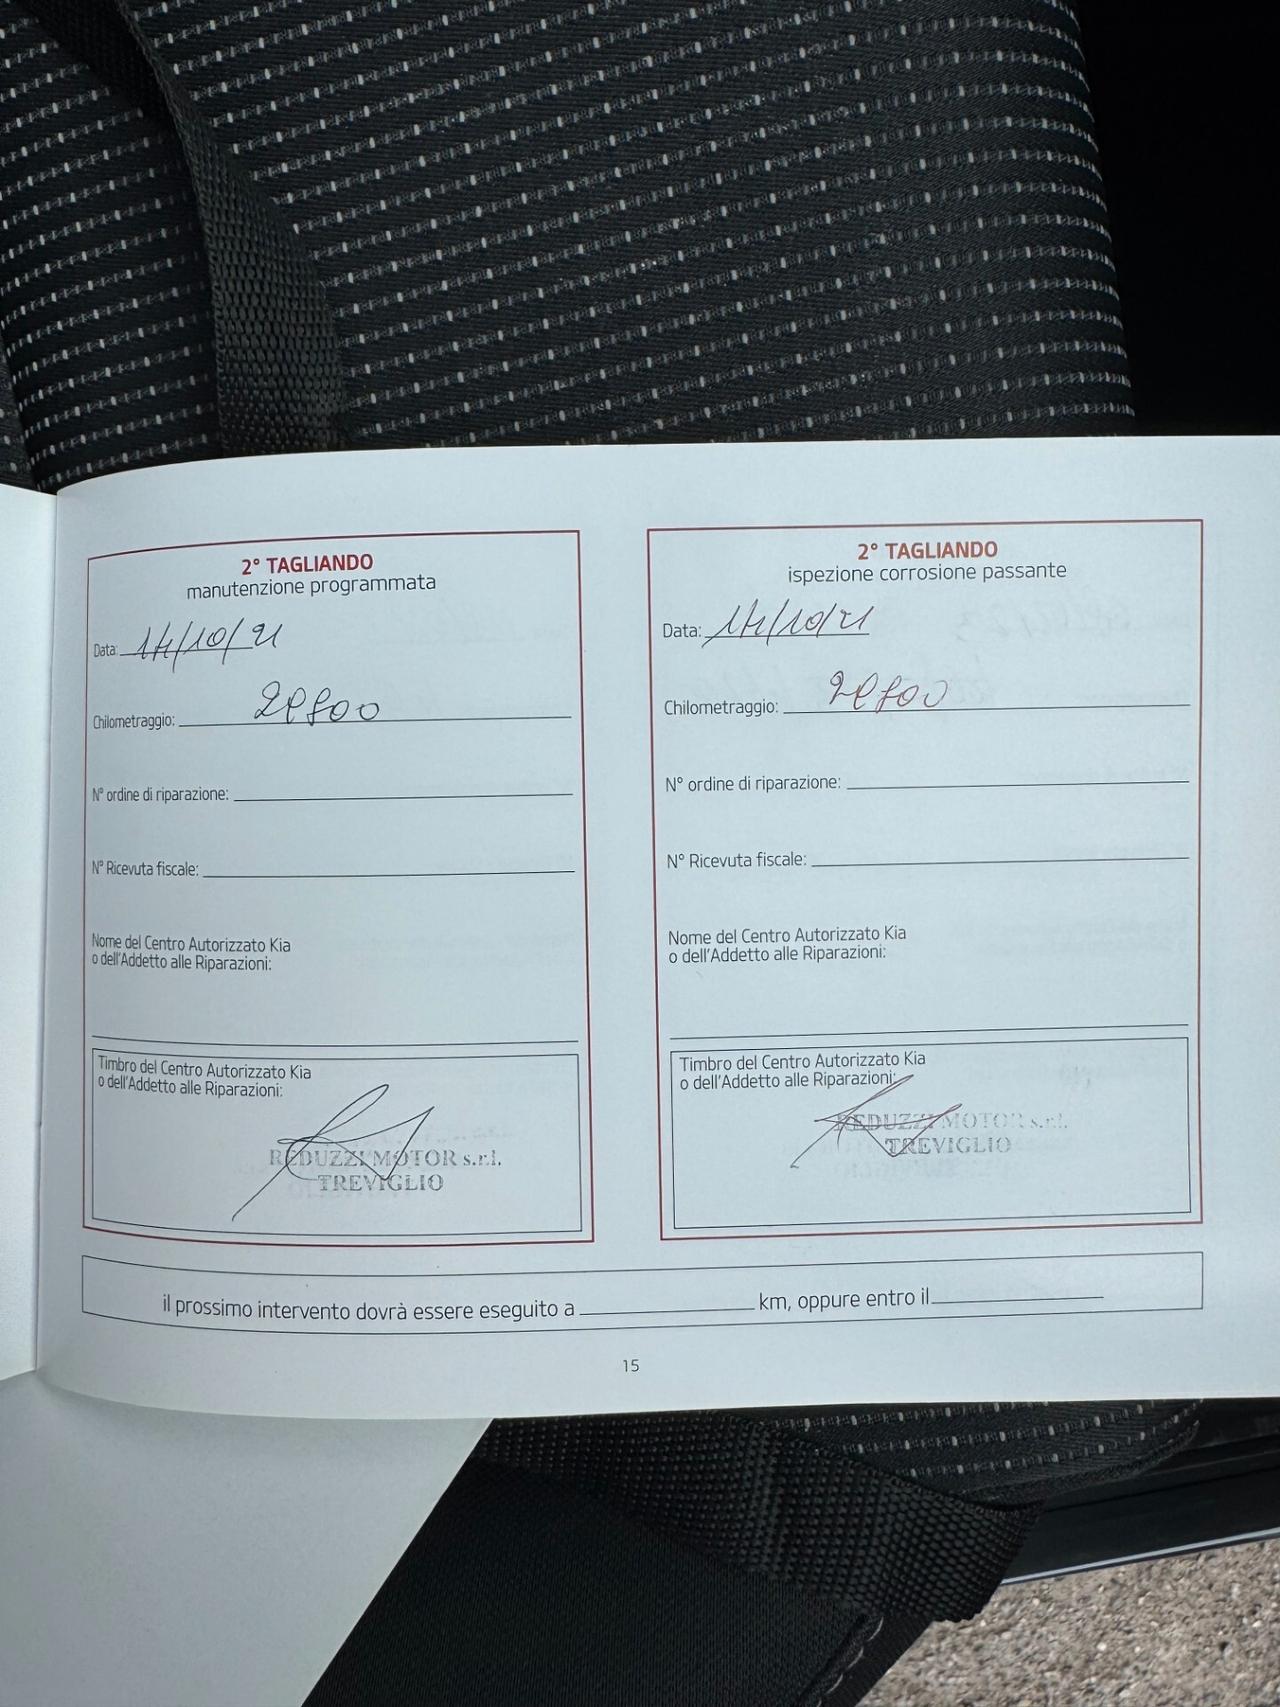 2° TAGLIANDO
manutenzione programmata
Data: 14/10/21
Chilometraggio:
N° ordine di riparazione:
N° Ricevuta fiscale:
Nome del Centro Autorizzato Kia
o dell'Addetto alle Riparazioni:
Timbro del Centro Autorizzato Kia
o dell'Addetto alle Riparazioni:
REDUZZI MOTOR s.r.l.
TREVIGLIO
2° TAGLIANDO
ispezione corrosione passante
Data: 14/10/21
Chilometraggio:
N° ordine di riparazione:
N° Ricevuta fiscale:
Nome del Centro Autorizzato Kia
o dell'Addetto alle Riparazioni:
Timbro del Centro Autorizzato Kia
o dell'Addetto alle Riparazioni:
REDUZZI MOTOR s.r.l.
TREVIGLIO
il prossimo intervento dovrà essere eseguito a km, oppure entro il
15